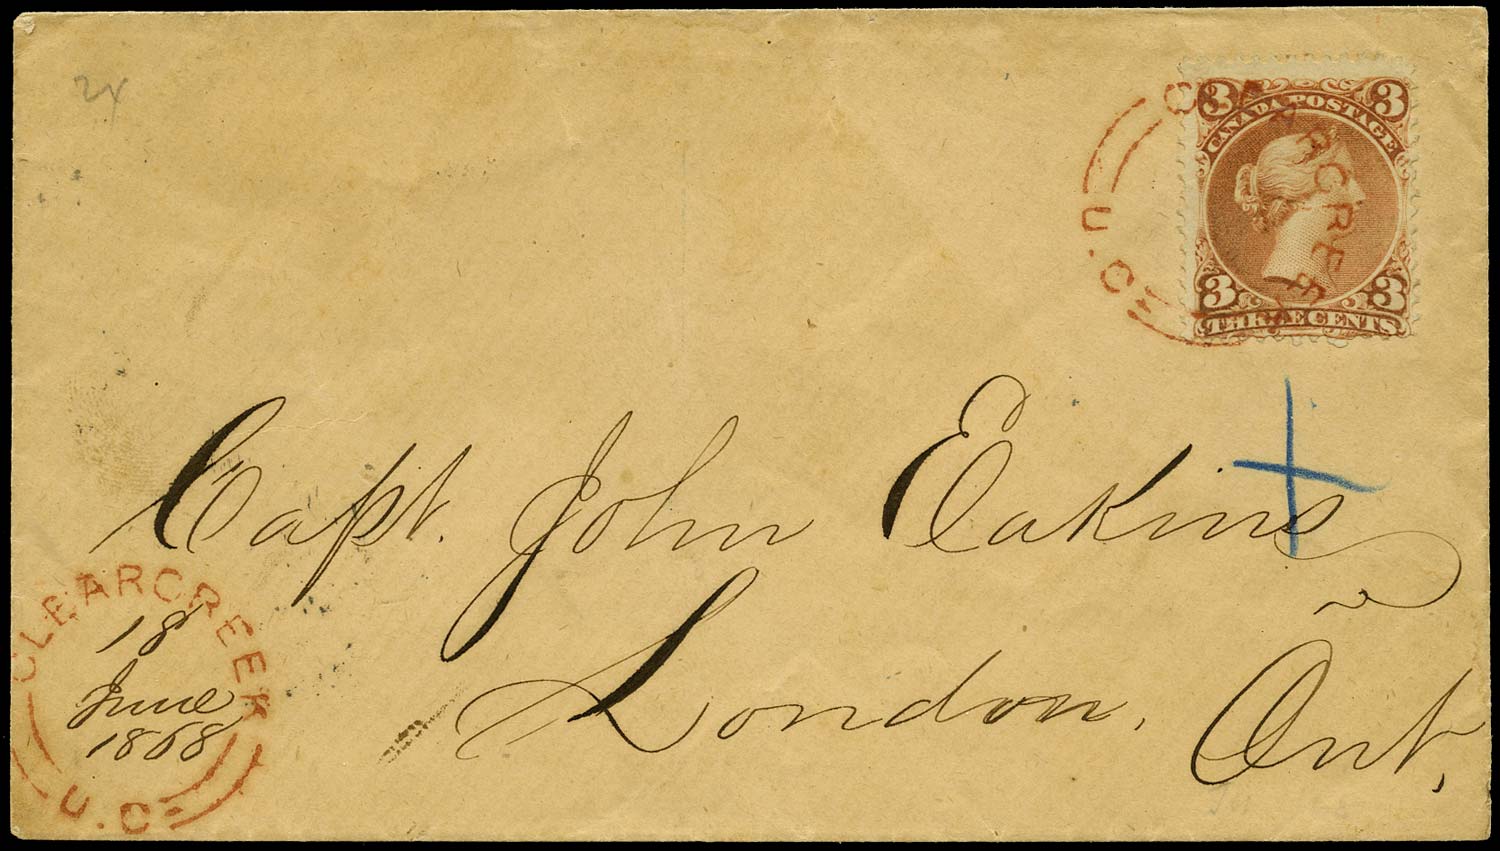 24
3 3
CANADA POSTAGE
3 3
THREE CENTS
CLEARCREEK
U.C.
Capt. John Eakins
London,
Ont.
CLEARCREEK
18
June
1868
U.C.